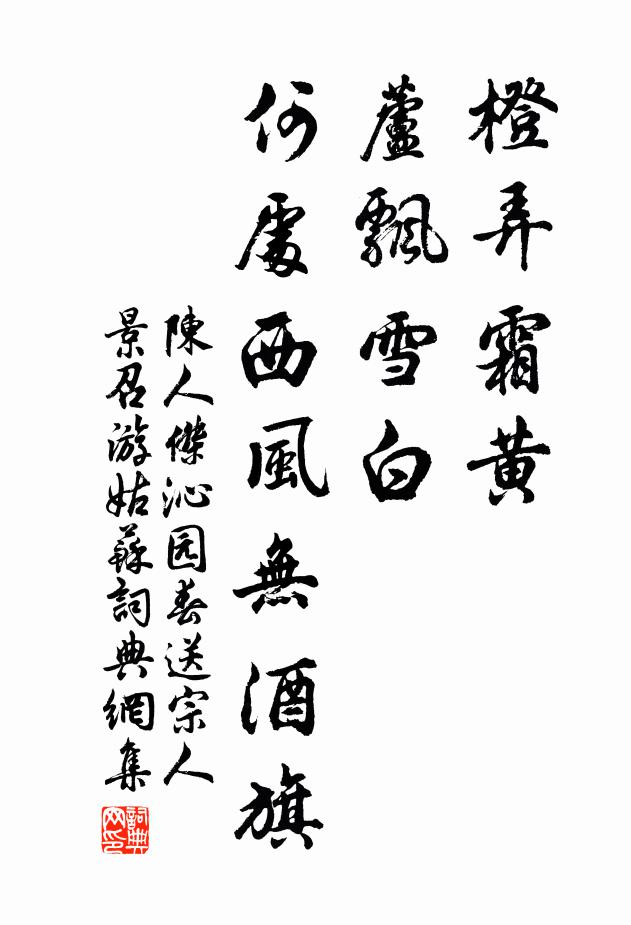 橙弄霜黄
蘆飄雪白
何處西風無酒旗
陳人傑沁园春送宗人
景召游姑蘇詞典網集
詞典
网印